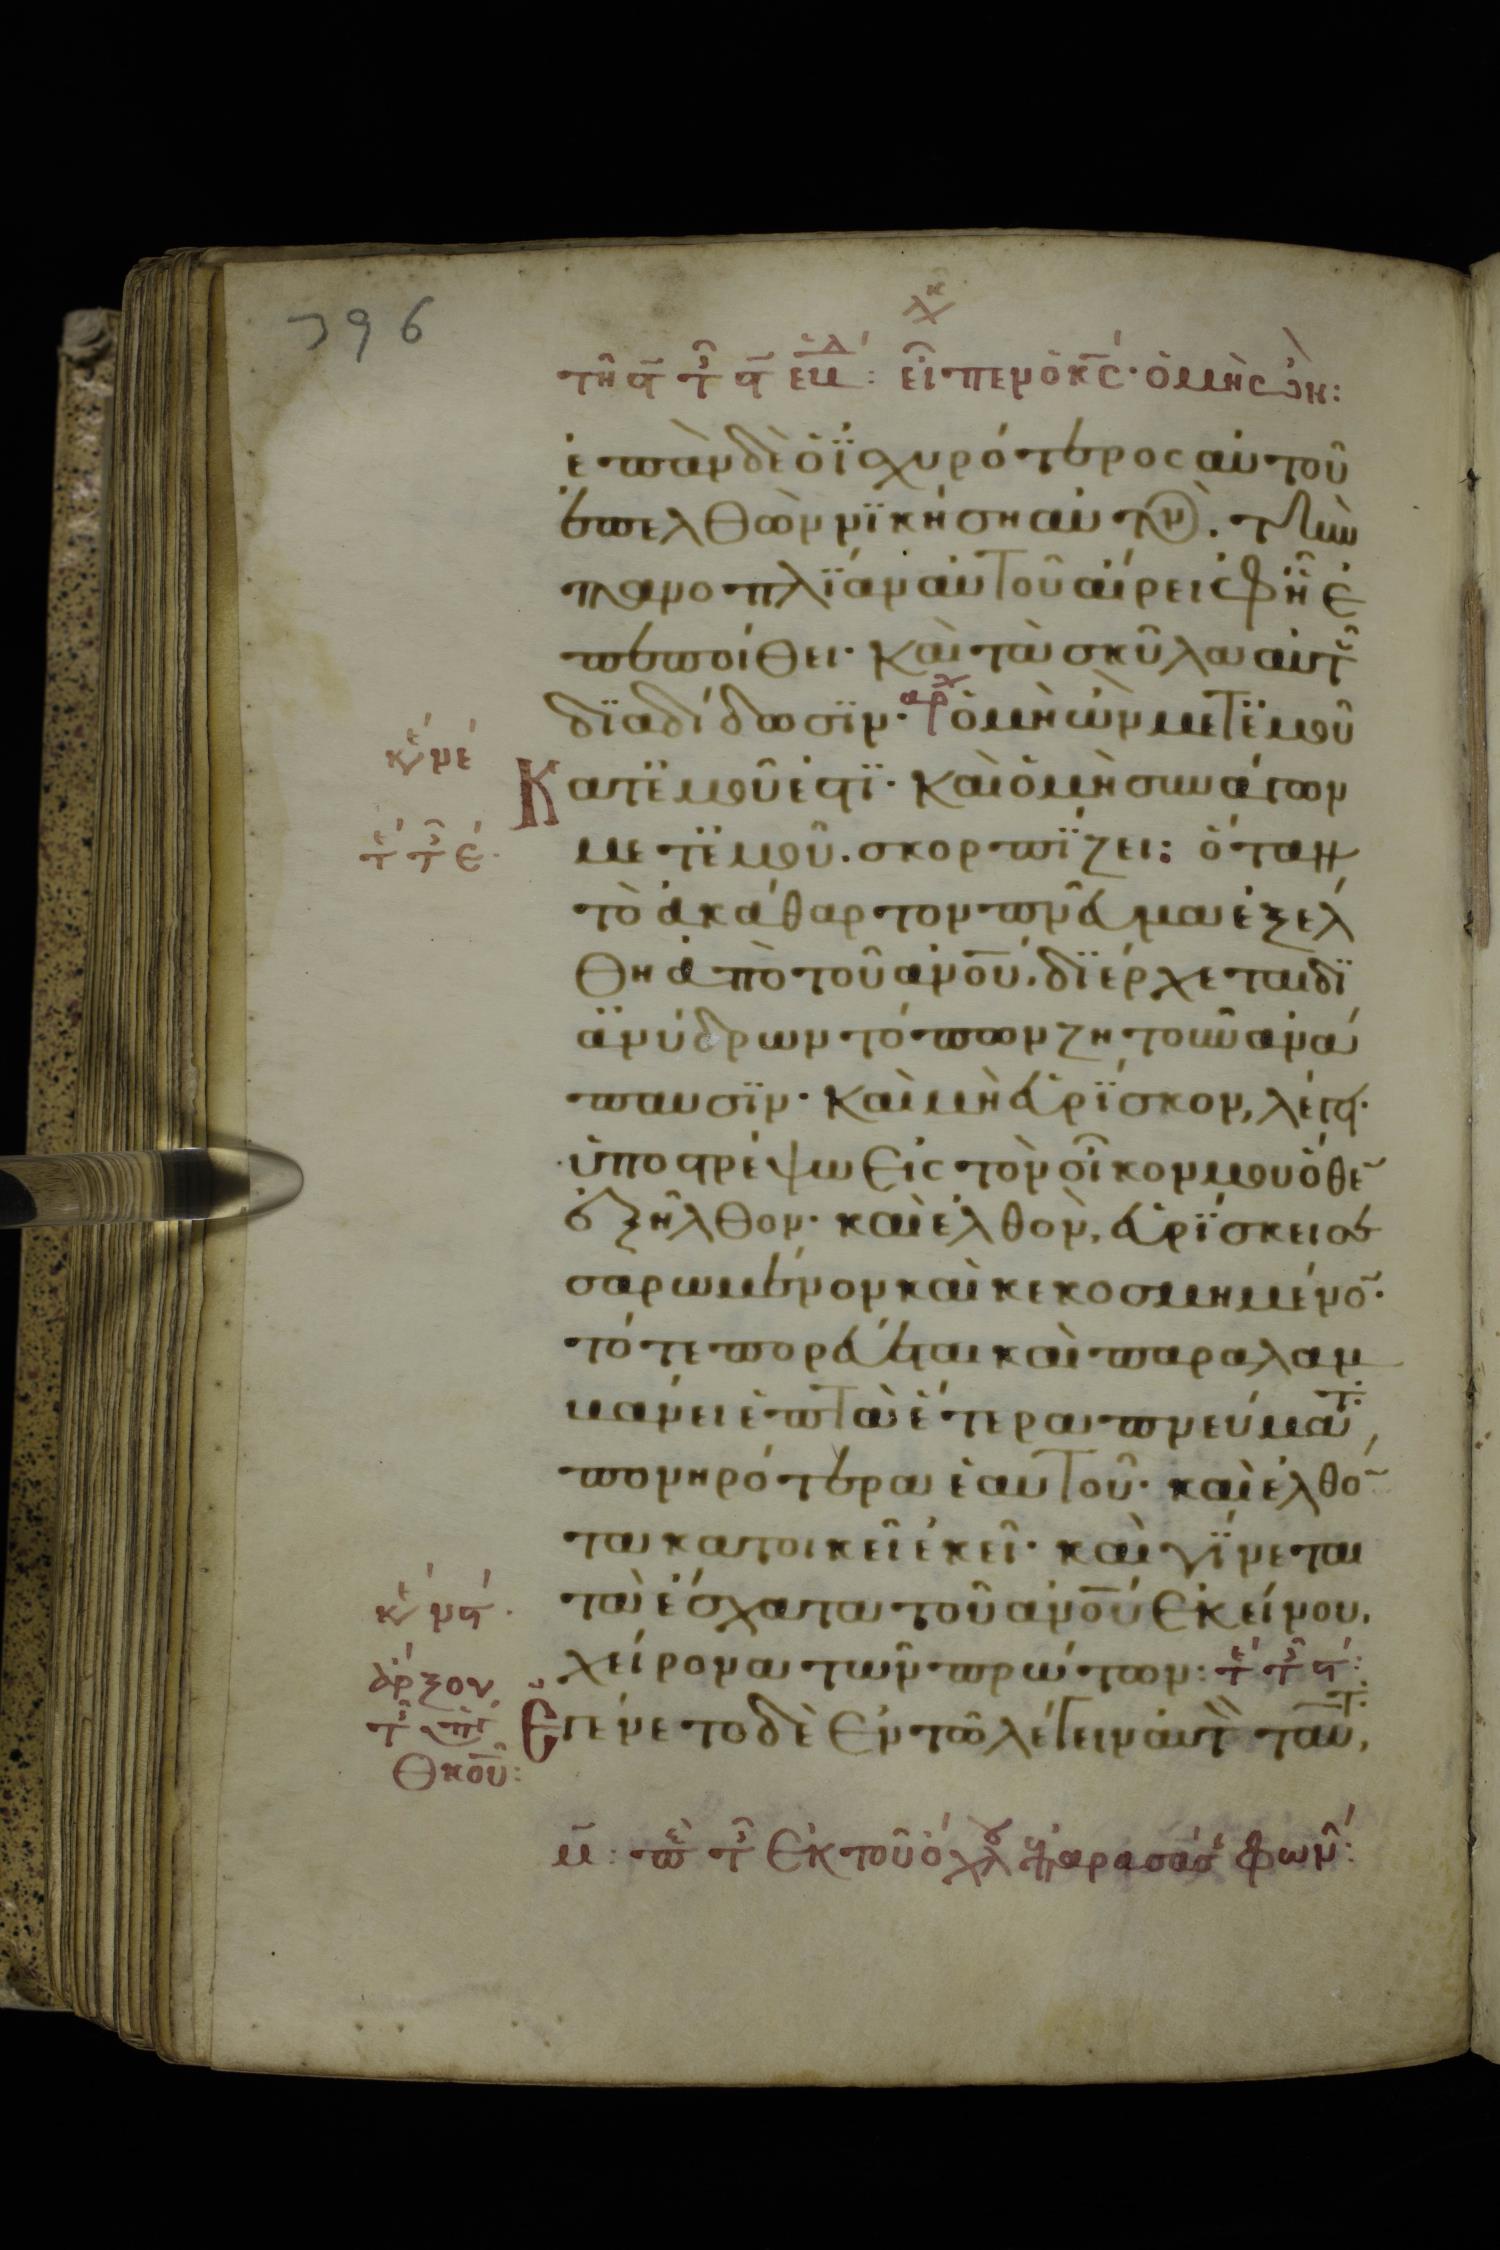 396
τῆ ϛ τῆς ϛ ἑβδ: εἶπεν ὁ κς· ὁ μὴ ὢν:
ἐπὰν δὲ ὁ ἰσχυρότερος αὐτοῦ
ἐπελθὼν νϊκήση αὐτὸν. τὴν
πανοπλΐαν αὐτοῦ αἴρει ἐφ ἧ ἐ
πεποίθει· καὶ τὰ σκῦλα αὐτοῦ
δϊαδίδωσϊν· ἀρχ ὁ μὴ ὢν μετ ἐμοῦ
κε με
Κατ ἐμοῦ ἐστϊ· καὶ ὁ μὴ συνάγων
μετ ἐμοῦ. σκορπΐζει: ὅταν
τὸ ἀκάθαρτον πνεῦμα ἐξέλ
θη ἀπὸ τοῦ ἀνου, δϊέρχεται δϊ
ἀνύδρων τόπων ζητοῦν ἀνά
παυσϊν· καὶ μὴ εὑρΐσκον, λέγει·
ὑποστρέψω εἰς τὸν οἶκον μου ὅθε
ἐξῆλθον· καὶ ἐλθὸν, εὑρΐσκει
σεσαρωμένον καὶ κεκοσμημένο·
τότε πορεύεται καὶ παραλαμ
βάνει ἑπτὰ ἕτερα πνεύματ,
πονηρότερα ἑαυτοῦ· καὶ ἐλθό
τα κατοικεῖ ἐκεῖ· καὶ γΐνεται
κε μϛ
τὰ ἔσχατα τοῦ ἀνου ἐκείνου,
χείρονα τῶν πρώτων:
Ἐγένετο δὲ ἐν τῶ λέγειν αὐτὸν ταῦτ,
Θκου:
ἐκ τοῦ ὄχλου φων: